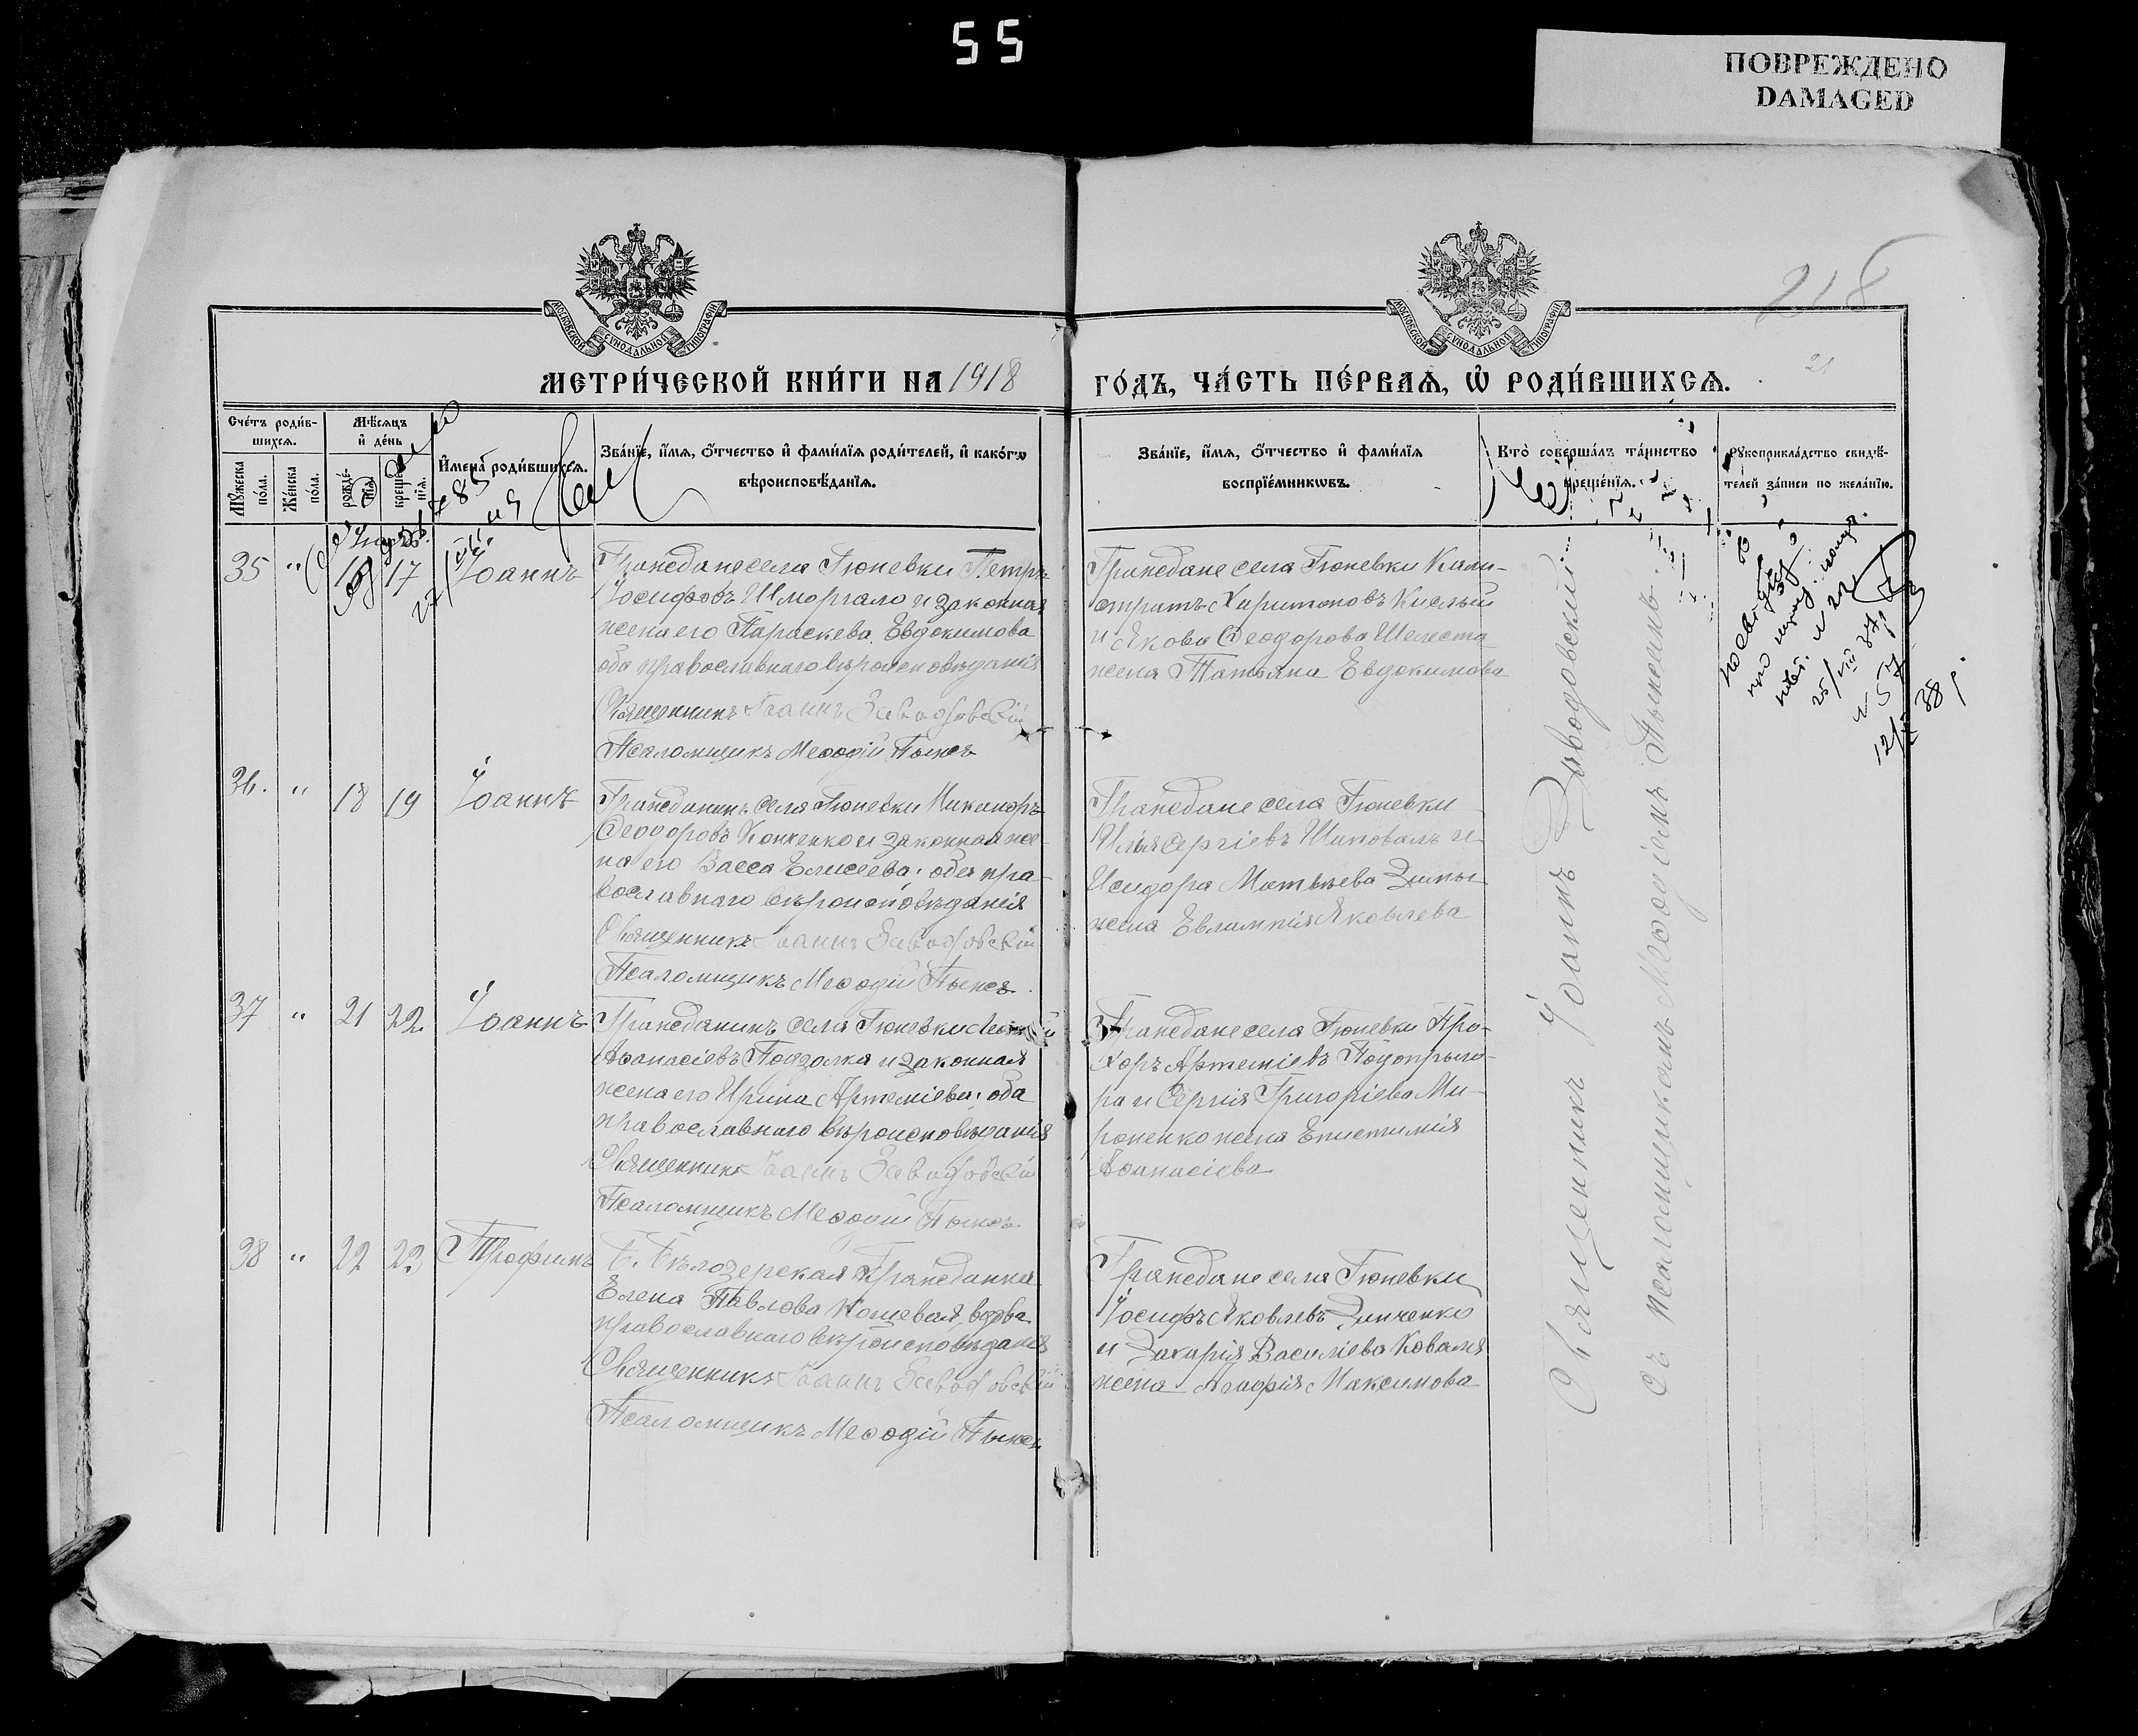 55
ПОВРЕЖДЕНО
DAMAGED
МОСКОВСКОЙ СѴНОДАЛЬНОЙ ТИПОГРАФІИ
МОСКОВСКОЙ СѴНОДАЛЬНОЙ ТИПОГРАФІИ
218
21
МЕТРИ́ЧЕСКОЙ КНИ́ГИ НА 1918
ГО́ДЪ, ЧА́СТЬ ПЕ́РВАѦ, Ѡ҆ РОДИ́ВШИХСѦ.
Сче́тъ роди́в-
шихсѧ.
Мꙋ́жеска
по́ла.
Же́нска
по́ла.
Мѣ́сѧцъ
и҆ де́нь
рожде́-
нїѧ
креще́-
нїѧ.
И҆мена̀ роди́вшихсѧ.
Зва́нїе, и҆́мѧ, ѻ҆́тчество и҆ фами́лїѧ роди́телей, и҆ како́гѡ
вѣроисповѣ́данїѧ.
Зва́нїе, и҆́мѧ, ѻ҆́тчество и҆ фами́лїѧ
воспрїе́мникѡвъ.
Кто̀ соверша́лъ та́инство
креще́нїѧ.
Рꙋкоприкла́дство свидѣ́-
телей за́писи по жела́нїю.
35 " 17 Іоаннъ
Граждане села Гюневки Петръ
Іосифовъ Шморгало и законная
жена его Параскева Евдокимова
оба православнаго вѣроисповѣданія
Священникъ Іоаннъ Заводовскій
Псаломщикъ Меѳодій
Граждане села Гюневки Кали-
стратъ Харитоновъ Кислый
и Якова Ѳеодорова Шелеста
жена Татьяна Евдокимова
36. " 18 19 Іоаннъ
Гражданинъ села Гюневки Никаноръ
Ѳеодоровъ Конченко и законная же-
на его Васса Елисеева: оба пра-
вославнаго вѣроисповѣданія
Священникъ Іоаннъ Заводовскій
Псаломщикъ Меѳодій
Граждане села Гюневки
Илья Сергіевъ Шиповалъ и
Исидора Матвѣева Зимы
жена Евлампія Яковлева
37 " 21 22. Іоаннъ
Гражданинъ села Гюневки
Аѳанасіевъ Подзолка и законная
жена его Ирина Артеміева: оба
православнаго вѣроисповѣданія
Священникъ Іоаннъ Заводовскій
Псаломщикъ Меѳодій
Граждане села Гюневки Про-
хоръ Артеміевъ Подопрыго-
ра и Сергія Григоріева Ми-
роненко жена Епистимія
Аѳанасіева
38 " 22 23 Трофимъ
С. Бѣлозерская Гражданка
Елена Павлова Кошевая, вдова
православнаго вѣроисповѣданія
Священникъ Іоаннъ Заводовскій
Псаломщикъ Меѳодій
Граждане села Гюневки
Іосифъ Яковлевъ Зинченко
и Захарія Василіева Коваля
жена Агафія Максимова
Священникъ Іоаннъ Заводовскій
съ псаломщикомъ Меѳодіемъ